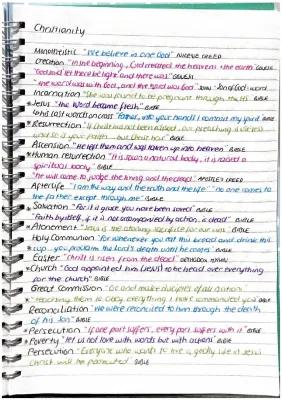 Christianity
Monotheistic "We believe in one God" NICENE CREED
Creation "In the beginning, God created the heavens + the earth" GENESIS
"God said let there be light and there was" GENESIS
"the word was with God, and the word was God" JOHN
Incarnation "She was found to be pregnant through the HS" BIBLE
Jesus "the Word became flesh" BIBLE
last words on cross "Father, into your hands I commit my spirit" BIBLE
Resurrection "if Christ has not been raised, our preaching is useless
and so is your faith BIBLE
Ascension "He left them and was taken up into heaven" BIBLE
Human resurrection "it is sown a natural body, it is raised a
spiritual body" BIBLE
"he will come to judge the living and the dead" APOSTLES CREED
Afterlife "I am the way and the truth and the life" "no one comes to
the father except through me" BIBLE
Salvation "For it is grace you have been saved" BIBLE
"Faith by itself, if it is not accompanied by action, is dead" BIBLE
Atonement "Jesus is the atoning sacrifice for our sins" BIBLE
Holy Communion "For whenever you eat this bread and drink this
cup .. you proclaim the Lord's death until he comes" BIBLE
Easter "Christ is risen from the dead" ORTHODOX HYMN
Church "God appointed him (Jesus) to be head over everything
for the church" BIBLE
Great Commission "Go and make disciples of all nation"
"teaching them to obey everything I have commanded you" BIBLE
Reconciliation "We were reconciled to him through the death
of his Son" BIBLE
Persecution "If one part suffers, every part suffers with it" BIBLE
Poverty "let us not love with words but with actions" BIBLE
Persecution "Everyone who wants to live a godly life in Jesus
Christ will be persecuted" BIBLE